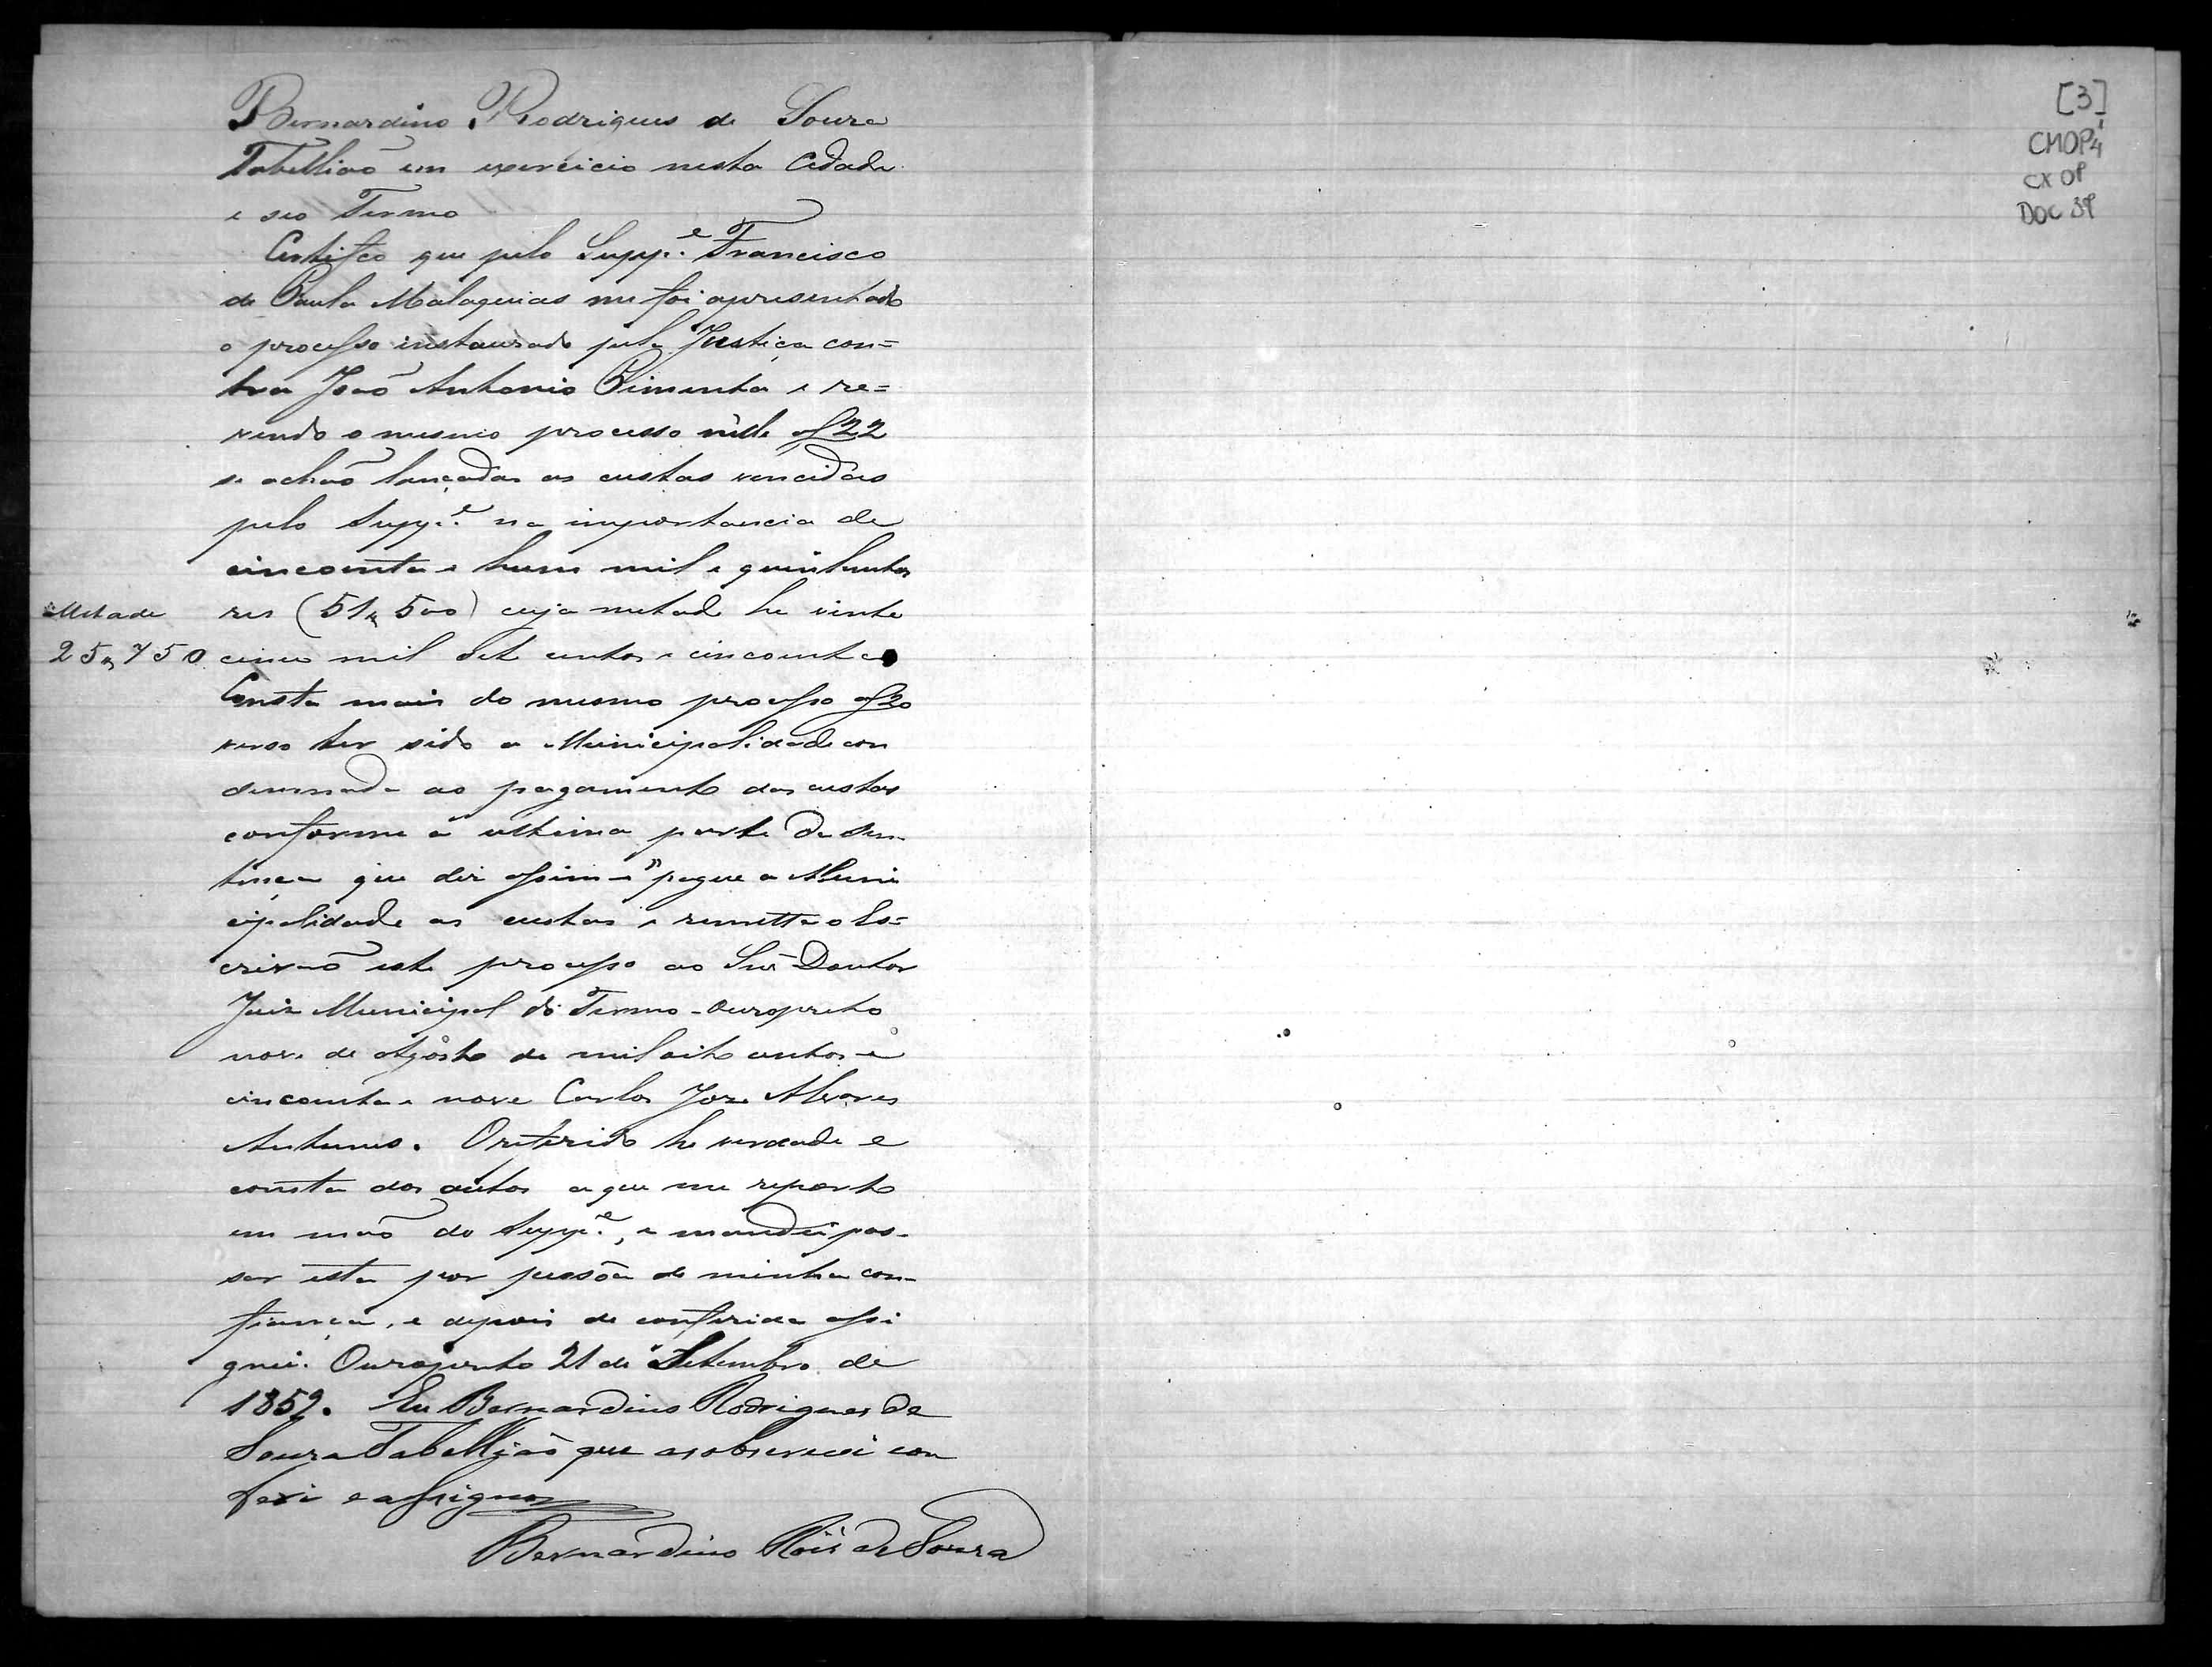 Bernardino Rodrigues de Souza
Tabellião em exercicio nesta Cidade
e seo Termo
Certifico que pelo Supp.e Francisco
de Paula Malaquias me foi apresentado
o processo instaurado pela Justiça con=
tra João Antonio Pimenta e re=
vendo o mesmo processo nelle af 22
se achão lançadas as custas vencidas
pelo Supp.e na importancia de
cincoenta e hum mil e quinhentos
res (51$500) cuja metade he vinte
Metade
25$750
cinco mil Sete centos e cincoenta
Consta mais do mesmo processo af 20
verso ter sido a Municipalidade con
demnada ao pagamento das custas
conforme a ultima parte da Sen
tença que diz assim - "pague a Muni
cipalidade as custas e remetta o Es=
crivaõ este processo ao Snr Doutor
Juiz Municipal do Termo - Ouropreto
nove de Agosto de mil oito centos e
cincoenta e nove Carlos Joze Alvares
Antunes. Oreferido he verdade e
consta dos autos aque me reporto
em maõ do Supp.e, e mandei pas-
sar esta por pessôa de minha con-
fiança, e depois de conferida assi
gnei. Ouropreto 21 de Setembro de
1859. Eu Bernardino Rodrigues de
Souza Tabellião que asobscrevi con
feri e assigno
Bernardino Roiz de Souza
[3]
CMOP
CX 01
DOC 39